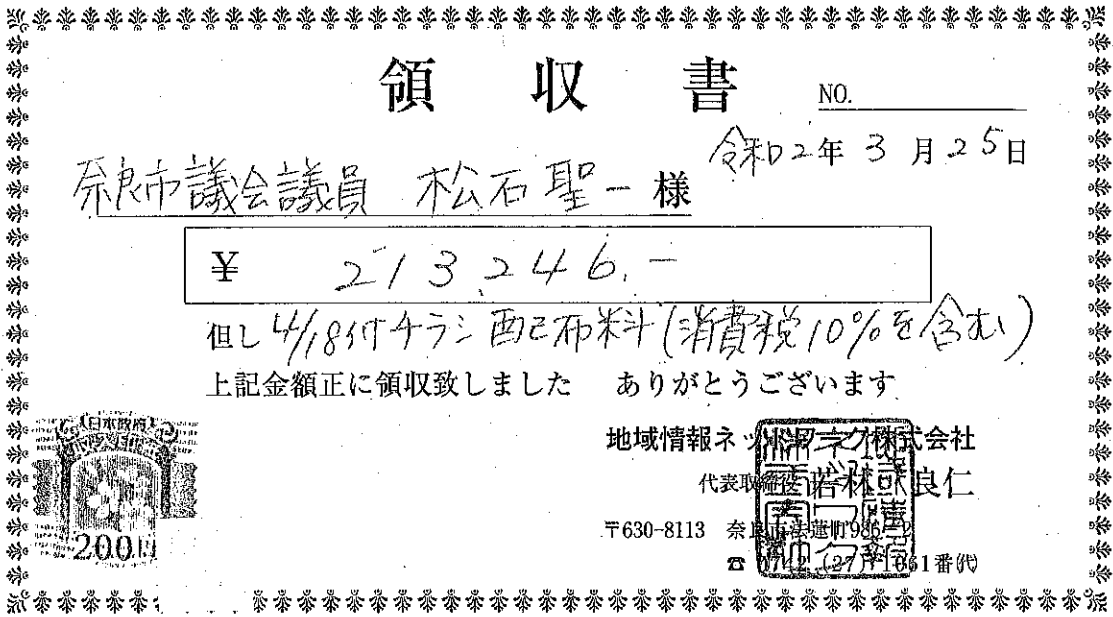 領収書
NO.
令和2年3月25日
奈良市議会議員 松石聖一様
¥ 213,246.-
但し4/18付チラシ配布料(消費税10%を含む)
上記金額正に領収致しました ありがとうございます
日本政府
200円
地域情報ネットワーク株式会社
代表取締役 若林 良仁
〒630-8113 奈良市法蓮町986-2
☎ 0742 (27) 1 61番(代)